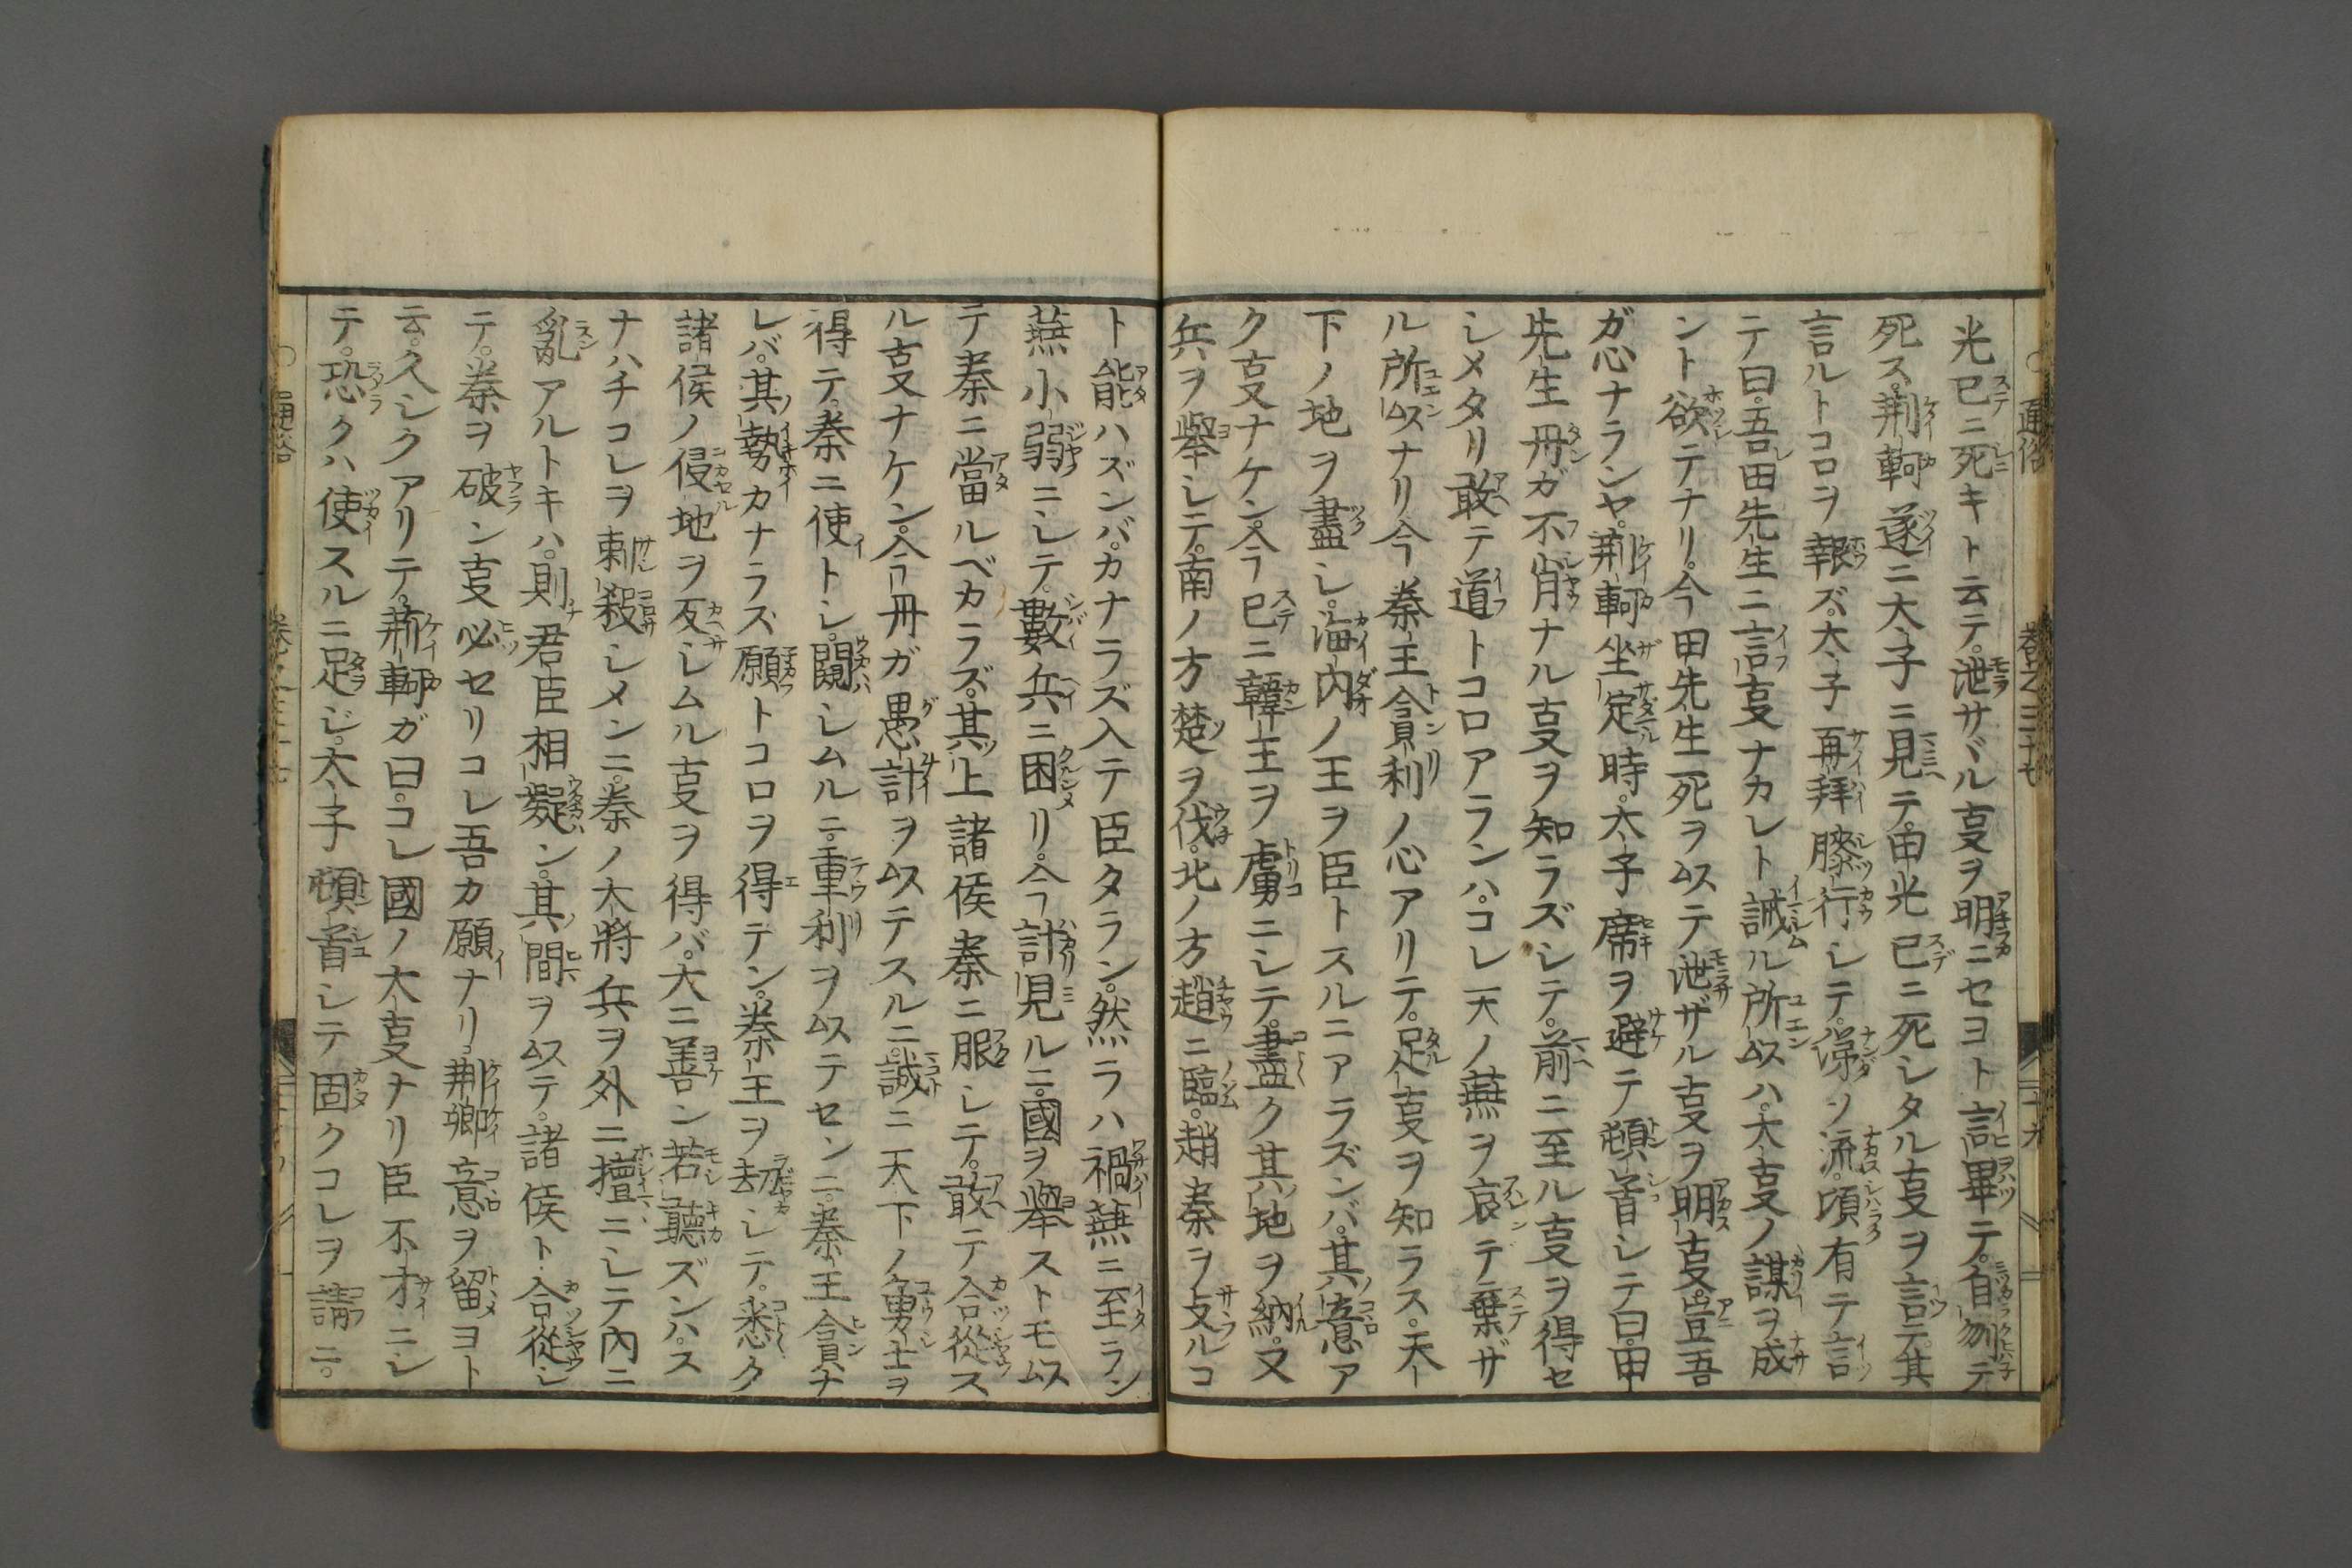 光已ニ死キト云テ。泄サヾル㕝ヲ明ニセヨト言畢テ。自刎テ
死ス。荆軻遂ニ太子ニ見テ。田光已ニ死シタル㕝ヲ言テ。其
言ルトコロヲ報ズ。太子再拜膝行シテ。涕ヲ流。頃有テ言
テ曰。吾田先生ニ言㕝ナカレト誡ル所以ハ。大㕝ノ謀ヲ成
ント欲テナリ。今田先生死ヲ以テ泄ザル㕝ヲ明㕝。豈吾
ガ心ナランヤ。荆軻坐定時。太子席ヲ避テ頓首シテ曰。田
先生丹ガ不肖ナル㕝ヲ知ラズシテ。前ニ至ル㕝ヲ得セ
シメタリ敢テ道トコロアランハ。コレ天ノ燕ヲ哀テ棄ザ
ル所以ナリ今秦王貪利ノ心アリテ。足㕝ヲ知ラス。天
下ノ地ヲ盡シ。海内ノ王ヲ臣トスルニアラズンバ。其意ア
ク㕝ナケン。今已ニ韓王ヲ虜ニシテ。盡ク其地ヲ納。又
兵ヲ擧シテ。南ノ方楚ヲ伐。北ノ方趙ニ臨。趙秦ヲ支ルコ
ト能ハズンバ。カナラズ入テ臣タラン。然ラハ禍燕ニ至ラン
燕小弱ニシテ。數兵ニ困リ。今計見ルニ。國ヲ擧ストモ以
テ秦ニ當ルベカラズ。其上諸侯秦ニ服シテ。敢テ合從ス
ル㕝ナケン。今丹ガ愚計ヲ以テスルニ。誠ニ天下ノ勇士ヲ
得テ。秦ニ使トシ。闚シムルニ。重利ヲ以テセンニ。秦王貪ナ
レバ。其勢カナラズ願トコロヲ得テン。秦王ヲ劫シテ。悉ク
諸侯ノ侵地ヲ反シムル㕝ヲ得バ。大ニ善ン若聽ズンハ。ス
ナハチコレヲ刺殺シメンニ。秦ノ大將兵ヲ外ニ擅ニシテ內ニ
亂アルトキハ。則君臣相疑ン。其間ヲ以テ。諸侯ト合從シ
テ。秦ヲ破ン㕝必セリコレ吾カ願ナリ荆卿意ヲ留ヨト
云。久シクアリテ。荆軻ガ曰。コレ國ノ大㕝ナリ臣不才ニシ
テ。恐クハ使スルニ足ジ。太子頓首シテ固クコレヲ請ニ。